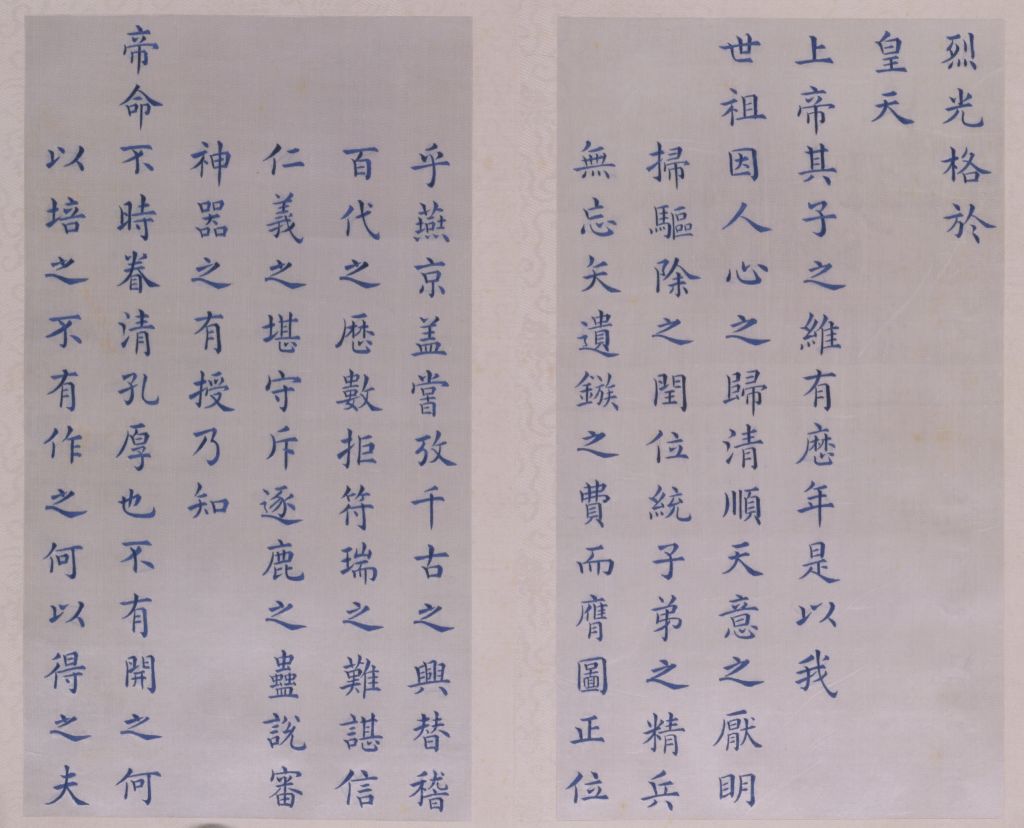 烈光格於
皇天
上帝其子之維有歷年是以我
世祖因人心之歸清順天意之厭明
掃驅除之閏位統子弟之精兵
無忘矢遺鏃之費而膺圖正位
乎燕京盖嘗攷千古之興替稽
百代之歷數拒符瑞之難諶信
仁義之堪守斥逐鹿之蠱說審
神器之有授乃知
帝命不時眷清孔厚也不有開之何
以培之不有作之何以得之夫